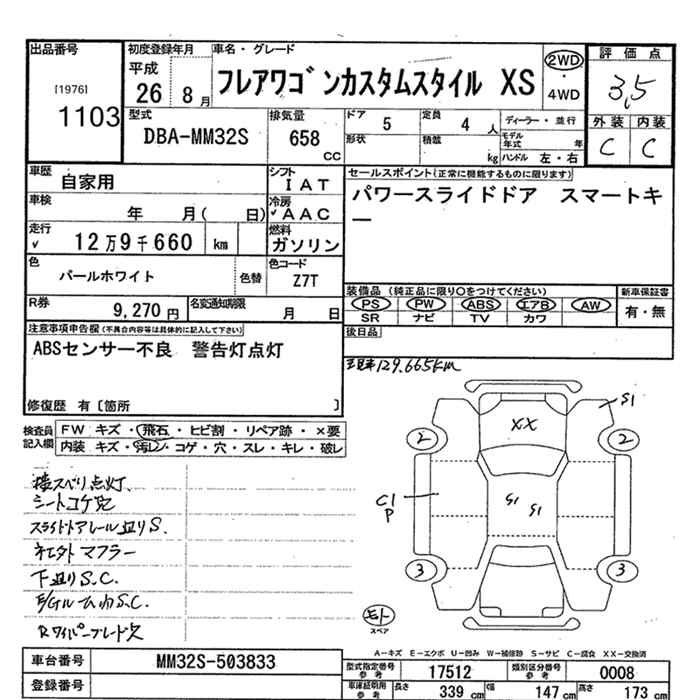 出品番号
[1976]
1103
初度登録年月
平成
26 8月
車名・グレード
フレアワゴンカスタムスタイル XS
2WD
・
4WD
評価点
3.5
外装 内装
C C
型式
DBA-MM32S
排気量
658
CC
ドア
5
定員
4 人
形状
積載
kg
ディーラー・並行
モデル年式 年
ハンドル 左・右
車歴
自家用
シフト
IAT
車検
年 月( 日)
冷房
AAC
走行
12万9千660 km
燃料
ガソリン
色
パールホワイト
色替
色コード
Z7T
R券
9,270 円
名変通知期限
月 日
セールスポイント(正常に機能するものに限ります)
パワースライドドア スマートキ
ー
装備品(純正品に限り○をつけてください)
PS PW ABS エアB AW
SR ナビ TV カワ
新車保証書
有・無
後日品
注意事項申告欄(不具合内容等は具体的に記入して下さい)
ABSセンサー不良 警告灯点灯
修復歴 有〔箇所 〕
129.665km
検査員
記入欄
FW キズ・飛石・ヒビ割・リペア跡・×要
内装 キズ・汚レ・コゲ・穴・スレ・キレ・破レ
横スベリ点灯、
シートコゲ穴
スライドドアレール辺りS.
社外マフラー
下廻りS.C.
E/Gルーム内S.C.
Rワイパーブレード欠
S1
XX
2 2
C1
P
S1 S1
3 3
モト
スペア
A-キズ E-エクボ U-凹み W-補修跡 S-サビ C-腐食 XX-交換済
車台番号
MM32S-503833
登録番号
型式指定番号
参考
17512
類別区分番号
参考
0008
車庫証明用
参考
長さ 339 cm 幅 147 cm 高さ 173 cm